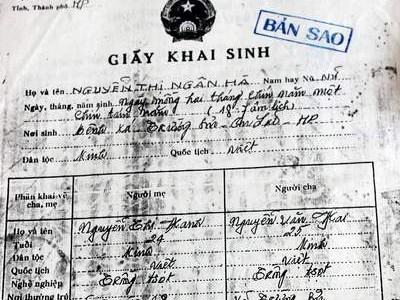 Tỉnh, Thành phố HP
BẢN SAO
GIẤY KHAI SINH
Họ và tên NGUYỄN THỊ NGÂN HÀ Nam hay Nữ Nữ
Ngày, tháng, năm sinh Ngày mồng hai tháng chín năm một
chín tám năm (18 âm lịch)
Nơi sinh xá Trường Sơn An Lão - HP
Dân tộc Kinh Quốc tịch Việt
Phần khai về cha, mẹ
Người mẹ
Người cha
Họ và tên Nguyễn Thị Nguyễn Văn
Tuổi 24 25
Dân tộc Kinh Kinh
Quốc tịch Việt Việt
Nghề nghiệp Trồng trọt Trồng trọt
Nơi thường trú